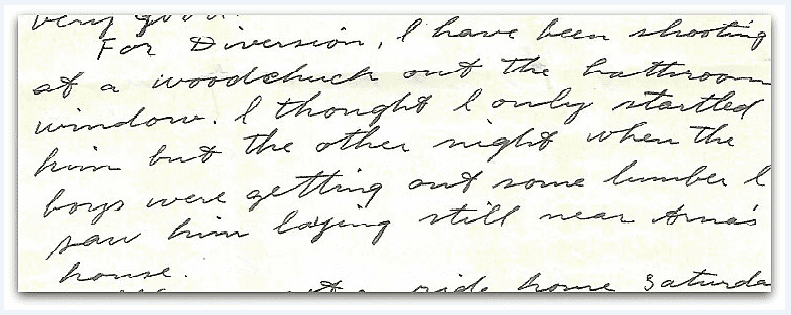 very good.
For Diversion, I have been shooting
at a woodchuck out the bathroom
window. I thought I only startled
him but the other night when the
boys were getting out some lumber I
saw him laying still near
house.
ride home Saturda